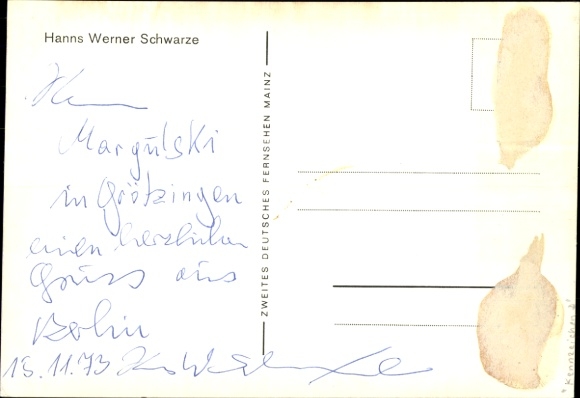 Hanns Werner Schwarze
Herrn
Margulski
in Grötzingen
einen herzlichen
Gruss aus
Berlin
15.11.73
ZWEITES DEUTSCHES FERNSEHEN MAINZ
"Kennzeichen D"